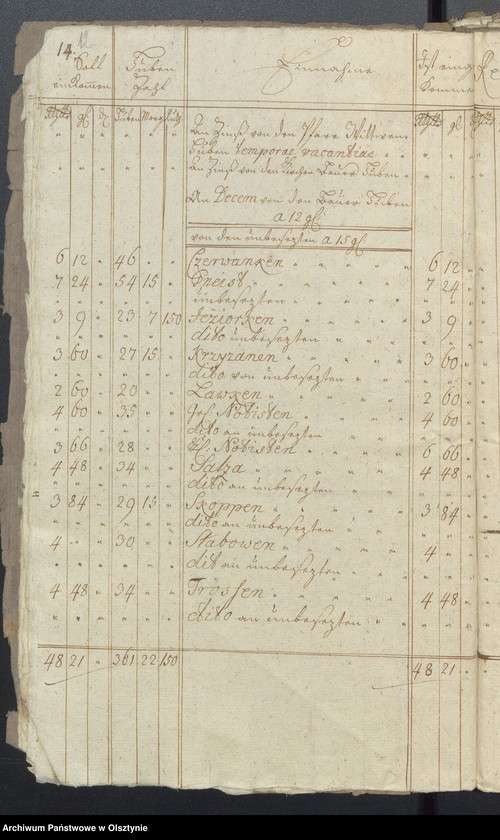 14. 12
Soll einkommen | Huben Zahl | Einnahme | Ist eing
Rthlr gl | Huben Morg | Rthlr gl
An Zinß von den Pfarr Wittwen
Huben temporae vacantiae
An Zinß von den Kirchen Bauer Huben
An Decem von den Bauer Huben
a 12 gl
von den unbesezten a 15 gl
6 12 " 46 " " Czerwanken 6 12
7 24 " 54 15 " Pneist 7 24
unbesezten
3 9 " 23 7 150 Jeziorken 3 9
dito unbesezten
3 60 " 27 15 " Krzyzanen 3 60
dito von unbesezten
2 60 " 20 " " Lawken 2 60
4 60 " 35 " " Grs. Notisten 4 60
dito an unbesezten
3 66 " 28 " " Kl. Notisten 6 66
4 48 " 34 " " Salza 4 48
dito an unbesezten
3 84 " 29 15 " Skoppen 3 84
dito an unbesezten
4 " " 30 " " Stabowen 4
dit an unbesezten
4 48 " 34 " " Trossen 4 48
dito an unbesezten
48 21 " 361 22 150 48 21
Archiwum Państwowe w Olsztynie